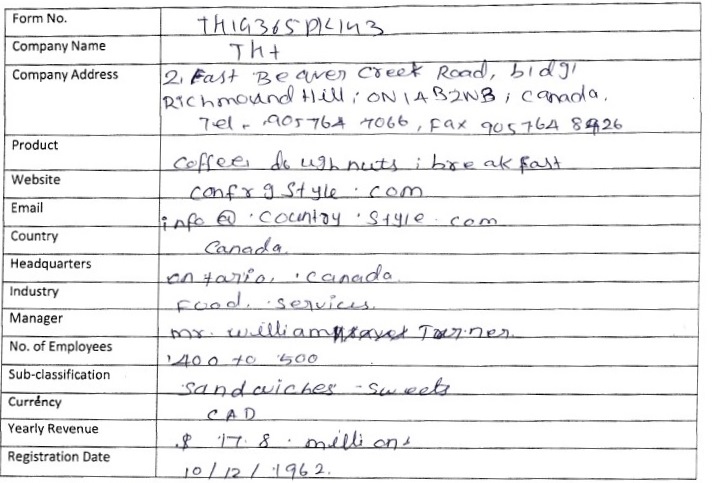 Form No. TH19365PK143
Company Name THt
Company Address 2, East Beaver Creek Road, bldg1
Richmound Hill, ON 1AB2NB, Canada.
Tel - 905764 7066, Fax 905764 8426
Product coffee, doughnuts, breakfast
Website confrgstyle.com
Email info@.country.style.com
Country Canada.
Headquarters ontario, canada
Industry Food. services.
Manager mr. william Turner
No. of Employees 400 to 500
Sub-classification Sandwiches - sweets
Currency CAD
Yearly Revenue $ 17.8 . millions
Registration Date 10/12/1962.